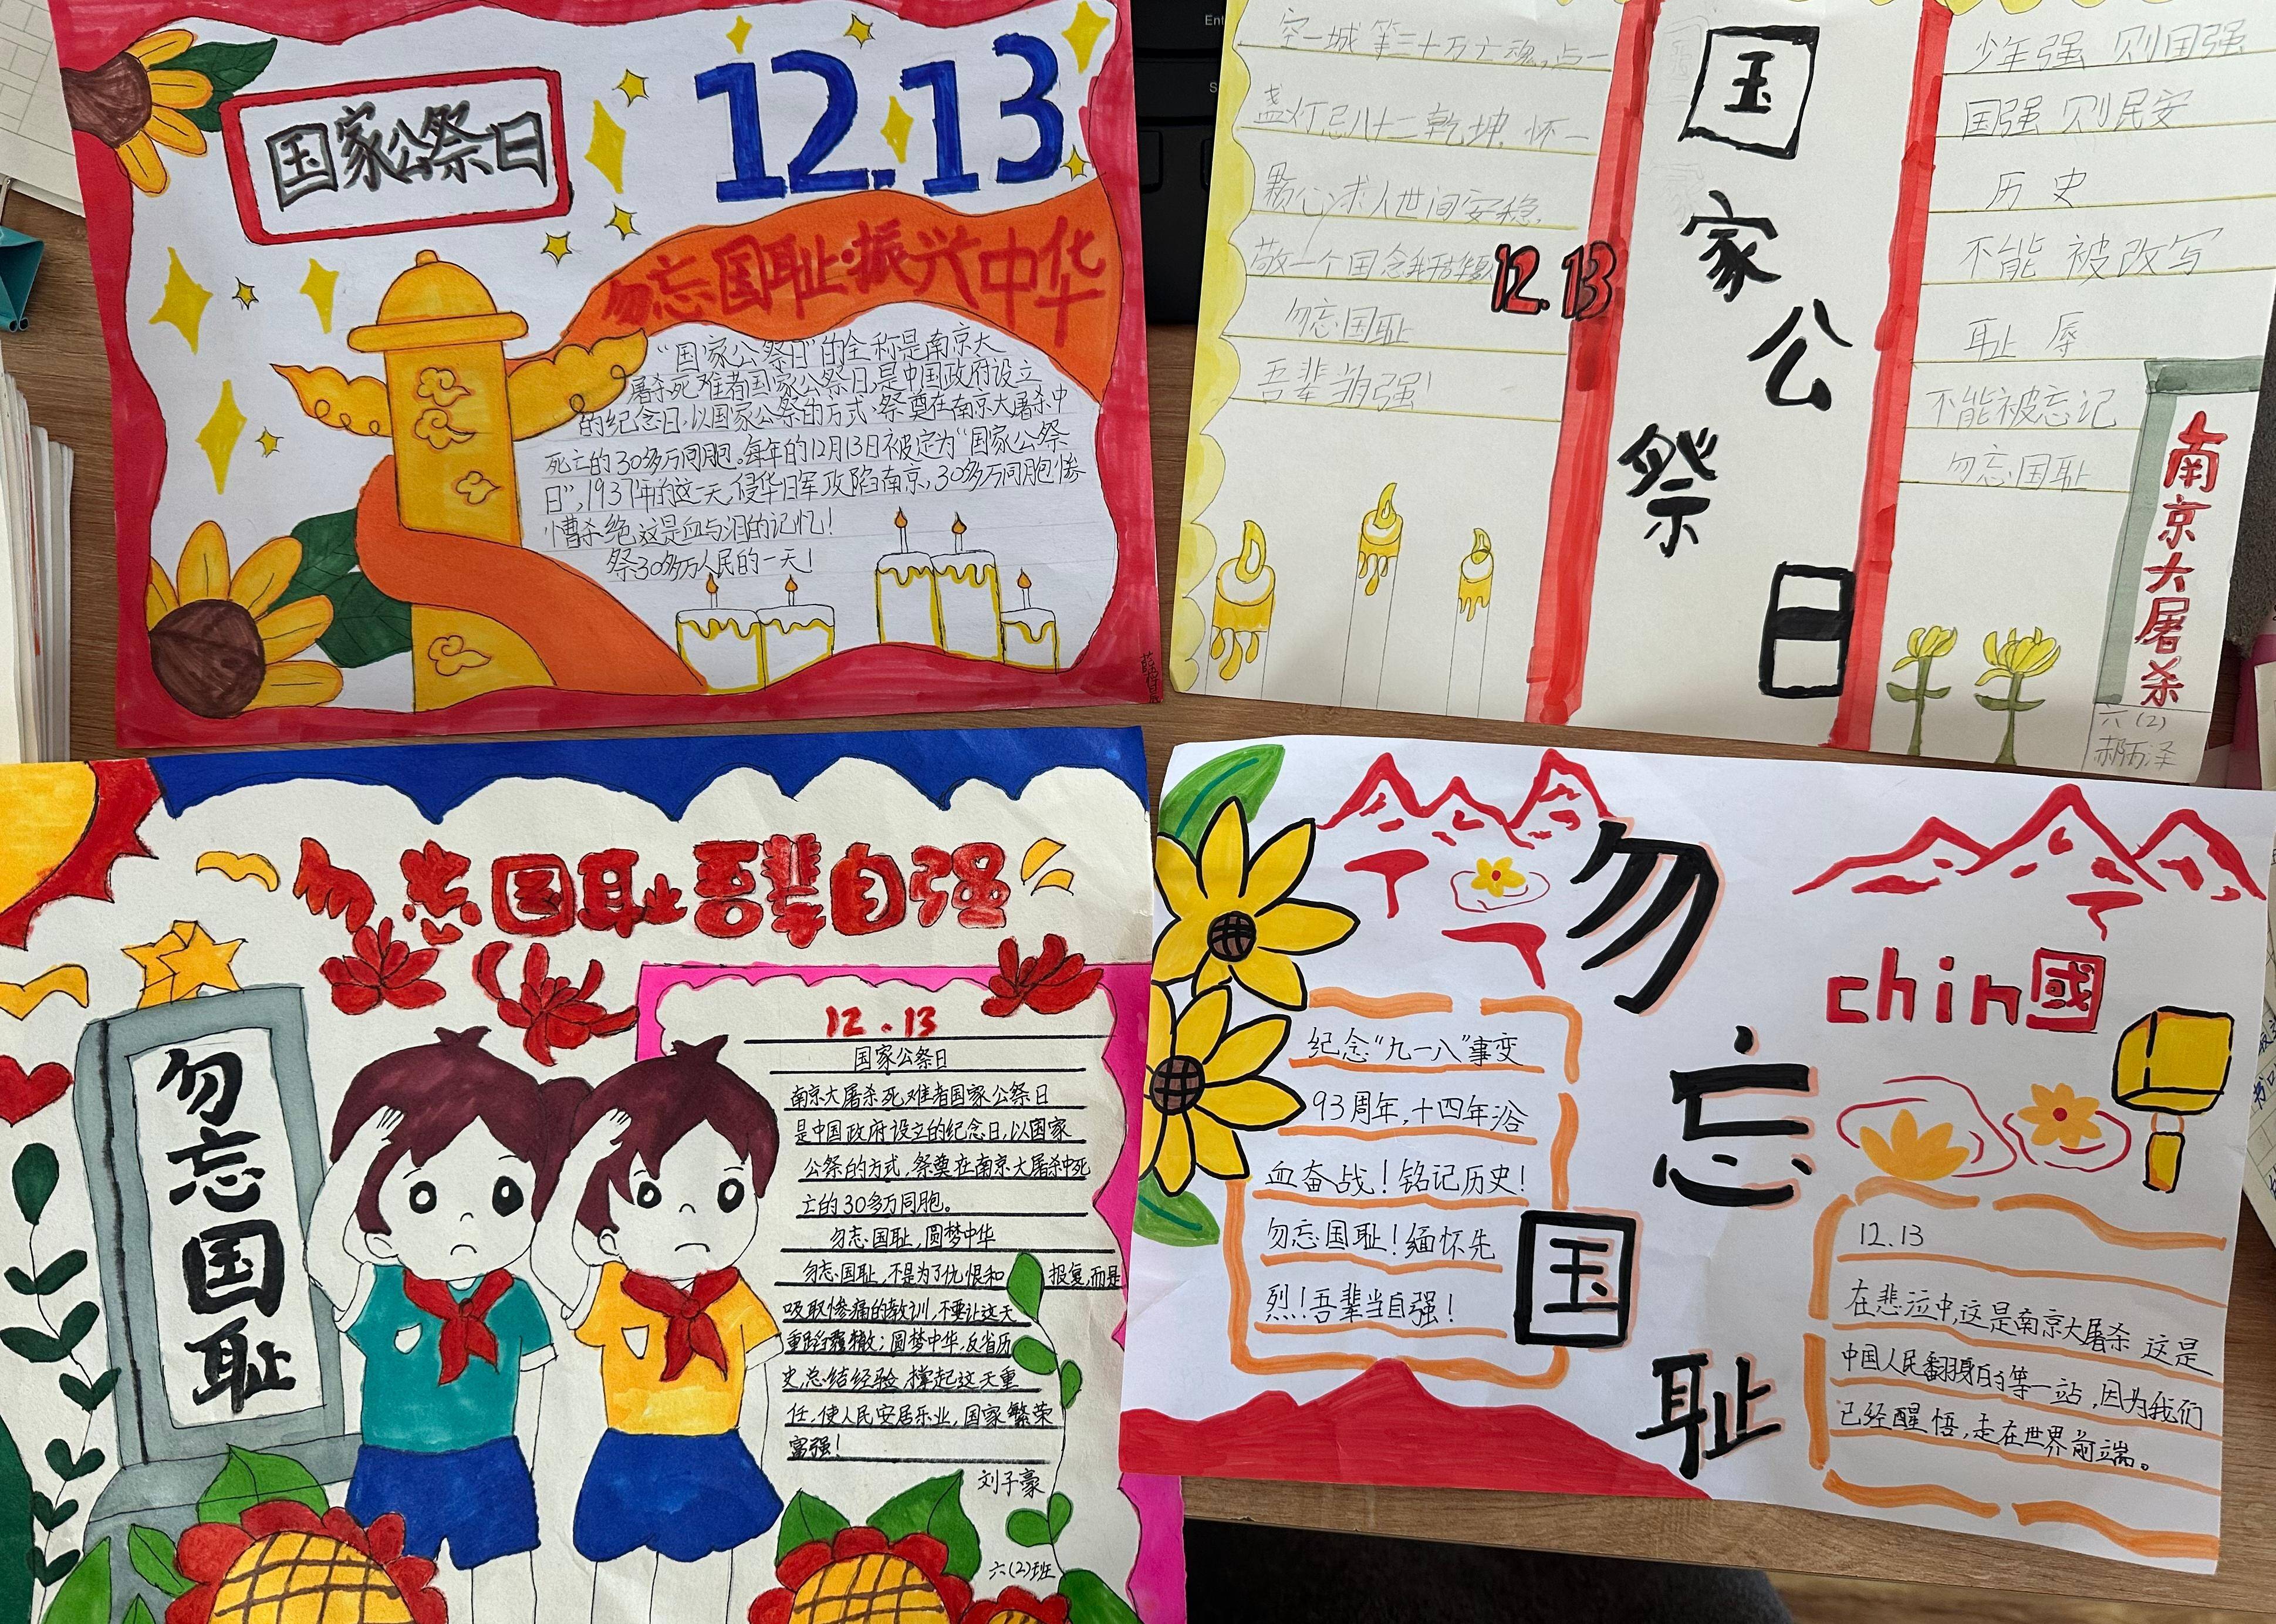 国家公祭日
12.13
勿忘国耻·振兴中华
“国家公祭日”的全称是南京大
屠杀死难者国家公祭日,是中国政府设立
的纪念日,以国家公祭的方式,祭奠在南京大屠杀中
死亡的30多万同胞。每年的12月13日被定为“国家公祭
日”,1937年的这一天,侵华日军攻陷南京,30多万同胞惨
慒杀绝这是血与泪的记忆!
祭30多万人民的一天!
空一城等三十万亡魂,点一
盏灯忌八十二乾坤.怀一
颗心求人世间安稳.
敬一个国念我
勿忘国耻
吾辈当强!
12.13
国家公祭日
少年强 则国强
国强 则民安
历史
不能 被改写
耻 辱
不能被忘记
勿忘国耻
南京大屠杀
六(2)
勿忘国耻吾辈自强
勿忘国耻
12.13
国家公祭日
南京大屠杀死难者国家公祭日
是中国政府设立的纪念日,以国家
公祭的方式,祭奠在南京大屠杀中死
亡的30多万同胞。
勿忘国耻,圆梦中华
勿忘国耻,不是为了仇恨和 报复,而是
吸取惨痛的教训,不要让这天
重蹈覆辙;圆梦中华,反省历
史总结经验,撑起这天重
任,使人民安居乐业,国家繁荣
富强!
刘子豪
六(2)班
勿忘国耻
chin國
纪念“九一八”事变
93周年,十四年浴
血奋战!铭记历史!
勿忘国耻!缅怀先
烈!吾辈当自强!
12.13
在悲泣中,这是南京大屠杀 这是
中国人民翻身的等一站,因为我们
已经醒悟,走在世界前端。